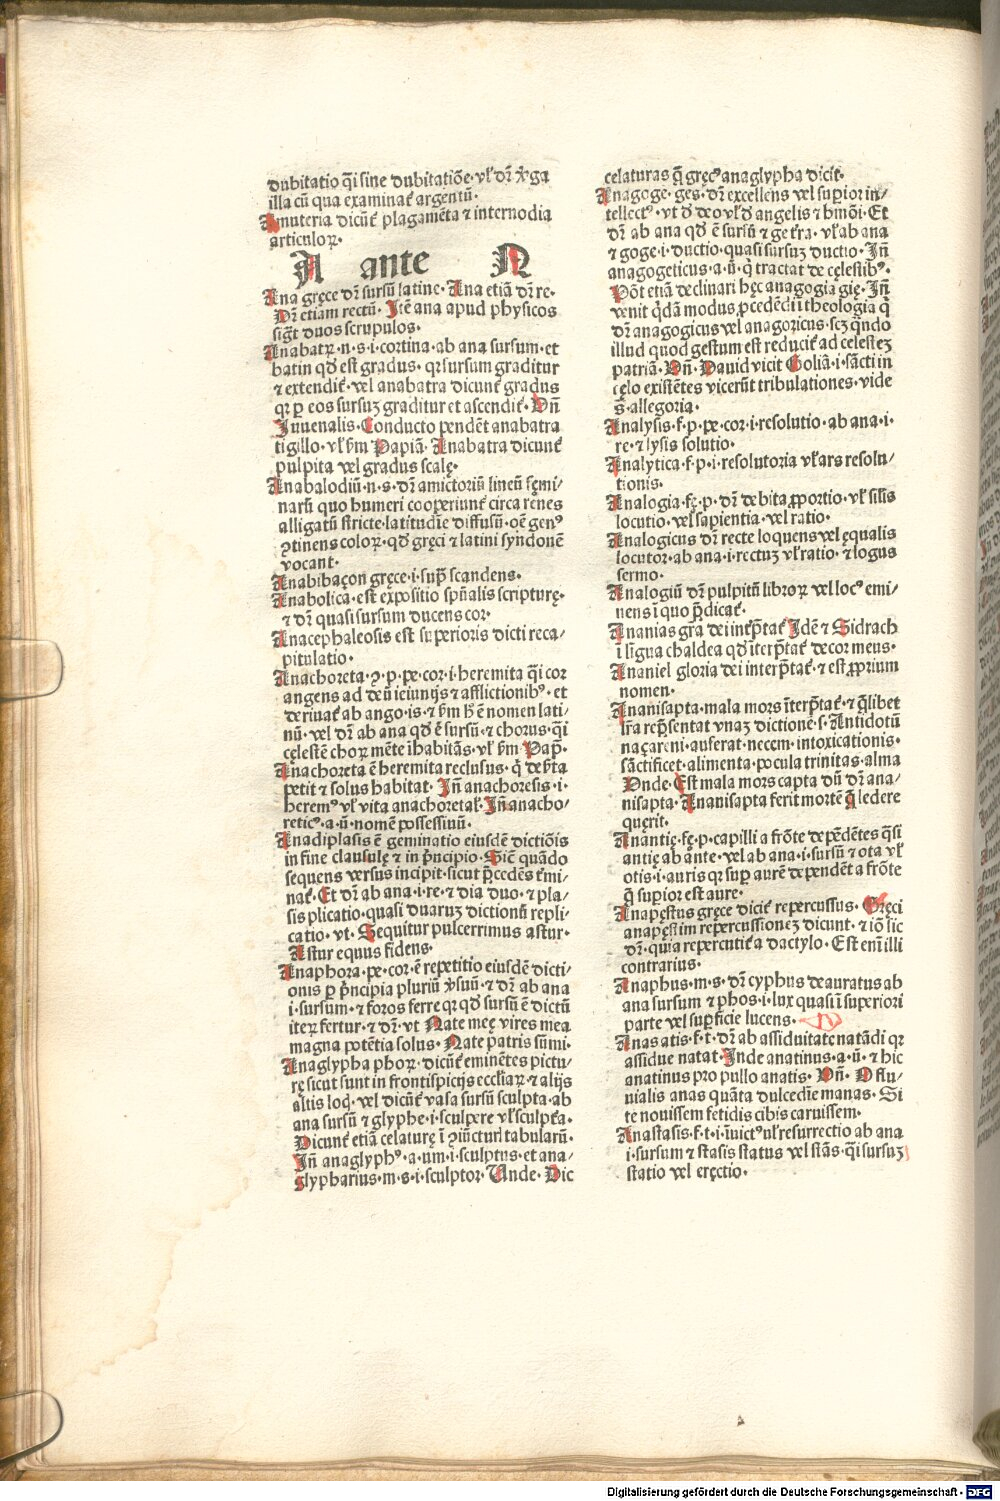 dubitatio q̄i sine dubitatiōe· vl̄ dr̄ v̓ga
illa cū qua examinat᷑ argentū·
Amuteria dicūt᷑ plagamēta ⁊ internodia
articuloꝝ·
A ante N
Ana gręce dr̄ sursū latine· Ana etiā dr̄ re·
Dr̄ etiam rectū· Itē ana apud physicos
sigt̄ duos scrupulos·
Anabatꝝ·n·s·i·cortina·ab ana sursum·et
batin qd̄ est gradus· qꝛ sursum graditur
⁊ extendit᷑· vel anabatra dicunt᷑ gradus
qꝛ ꝑ eos sursuꝫ graditur et ascendit᷑· Vn̄
Iuuenalis· Conducto pendēt anabatra
tigillo· vl̄ ẜm Papiā· Anabatra dicunt᷑
pulpita vel gradus scalę·
Anabalodiū·n·s·dr̄ amictoriū lineū fęmi⸗
narū quo humeri cooperiunt᷑ circa renes
alligatū stricte· latitudīe diffusū· oē̄ genꝰ
ꝯtinens coloꝝ· qd̄ gręci ⁊ latini syndonē
vocant·
Anabibaçon gręce·i·supͣ scandens·
Anabolica·est expositio spūalis scripturę·
⁊ dr̄ quasi sursum ducens cor·
Anacephaleosis est superioris dicti reca⸗
pitulatio·
Anachoreta·ꝯ·p·pe·cor·i·heremita q̄i cor
angens ad deū ieiunijs ⁊ afflictionibꝰ· et
deriuat᷑ ab ango·is·⁊ ẜm h̄ ē nomen lati⸗
nū· vel dr̄ ab ana qd̄ ē sursū·⁊ chorus·q̄i
cęlestē choꝝ mēte īhabitās· vl̄ ẜm Pap̄·
Anachoreta ē heremita reclusus· q̇ de v̓ta
petit ⁊ solus habitat· In̄ anachoresis·i·
heremꝰ vl̄ vita anachoretaꝝ· In̄ anacho⸗
reticꝰ·a·ū·nomē possessiuū·
Anadiplasis ē geminatio eiusdē dictiōis
in fine clausulę ⁊ in pͥncipio· Sic᷑ quādo
sequens versus incipit·sicut p̄cedēs t᷑mi⸗
nat᷑· Et dr̄ ab ana·i·re·⁊ dia duo·⁊ pla⸗
sis plicatio·quasi duaruꝫ dictionū repli⸗
catio· vt· Sequitur pulcerrimus astur·
Astur equus fidens·
Anaphora·pe·cor·ē repetitio eiusdē dicti⸗
onis ꝑ pͥncipia pluriū v̓suū·⁊ dr̄ ab ana
·i·sursum·⁊ foros ferre qꝛ qd̄ sursū ē dictū
iteꝝ fertur·⁊ dr̄· vt Nate meę vires mea
magna potētia solus· Nate patris sūmi·
Anaglypha phoꝝ·dicūt᷑ eminētes pictu⸗
rę sicut sunt in frontispicijs eccl̄iaꝝ·⁊ alijs
altis loq̃· vel dicūt᷑ vasa sursū sculpta·ab
ana sursū ⁊ glyphe·i·sculpere vl̄ sculpt᷑a·
Dicunt᷑ etiā celaturę ī ꝯiūctur̄ tabularū·
In̄ anaglyphꝰ·a·um·i·sculptus·et ana⸗
glypharius·m·s·i·sculptor· Unde· Dic
celaturas q̄ gręcꝰ anaglypha dicit᷑·
Anagoge·ges·dr̄ excellens vel suꝑior in⸗
tellectꝰ·vt d̄ deo vl̄ d̄ angelis ⁊ hmōi· Et
dr̄ ab ana qd̄ ē sursū ⁊ ge t᷑ra· vl̄ ab ana
⁊ goge·i·ductio·quasi sursuꝫ ductio· In̄
anagogeticus·a·ū·q̇ tractat de cęlestibꝰ·
Pōt etiā declinari hęc anagogia gię· In̄
venit q̇dā modus ꝓcedēdi ī theologia q̇
dr̄ anagogicus vel anagoricus·scꝫ qn̄do
illud quod gestum est reducit᷑ ad celesteꝫ
patriā· Vn̄· Dauid vicit Goliā·i·sācti in
cęlo existētes vicerūt tribulationes· vide
s̄·allegoria·
Analysis·f·p·pe·cor·i·resolutio·ab ana·i·
re·⁊ lysis solutio·
Analytica·f·p·i·resolutoria vl̄ ars resolu⸗
tionis·
Analogia·fę·p·dr̄ debita ꝓportio· vl̄ sil̄is
locutio· vel sapientia·vel ratio·
Analogicus dr̄ recte loquens vel ęqualis
locutor·ab ana·i·rectuꝫ vl̄ ratio·⁊ logus
sermo·
Analogiū dr̄ pulpitū libroꝝ vel locꝰ emi⸗
nens ī quo p̄dicat᷑·
Ananias gr̄a dei int᷑p̄tat᷑ Idē ⁊ Sidrach
ī līgua chaldea qd̄ īterp̄tat᷑ decor meus·
Ananiel gloria dei interp̄tat᷑·⁊ est ꝓprium
nomen·
Ananisapta·mala mors īterp̄tat᷑·⁊ q̄libet
lr̄a repͣsentat vnaꝫ dictione·s· Antidotū
naçareni·auferat·necem·intoxicationis·
sāctificet·alimenta·pocula trinitas·alma
Vnde· Est mala mors capta dū dr̄ ana⸗
nisapta· Ananisapta ferit mortē q̄ ledere
quęrit·
Anantię·fę·p·capilli a frōte depēdētes q̄si
antię ab ante· vel ab ana·i·sursū ⁊ ota vl̄
otis·i·auris qꝛ suꝑ aurē dependēt a frōte
q̄ suꝑior est aure·
Anapęstus gręce dicit᷑ repercussus· Gręci
anapęstim repercussioneꝫ dicunt·⁊ iō sic
dr̄· quia repercutit᷑ a dactylo· Est enī illi
contrarius·
Anaphus·m·s·dr̄ cyphus deauratus ab
ana sursum ⁊ phos·i·lux quasi ī superiori
parte vel suꝑficie lucens·
Anas atis·f·t·dr̄ ab assiduitate natādi qꝛ
assidue natat· Inde anatinus·a·ū·⁊ hic
anatinus pro pullo anatis· Vn̄· O flu⸗
uialis anas quāta dulcedīe manas· Si
te nouissem fetidis cibis caruissem·
Anastasis·f·t·i·īuictꝰ vl̄ resurrectio ab ana
·i·sursum ⁊ stasis status vel stās·q̄i sursuꝫ
statio vel eręctio·
Digitalisierung gefördert durch die Deutsche Forschungsgemeinschaft - DFG